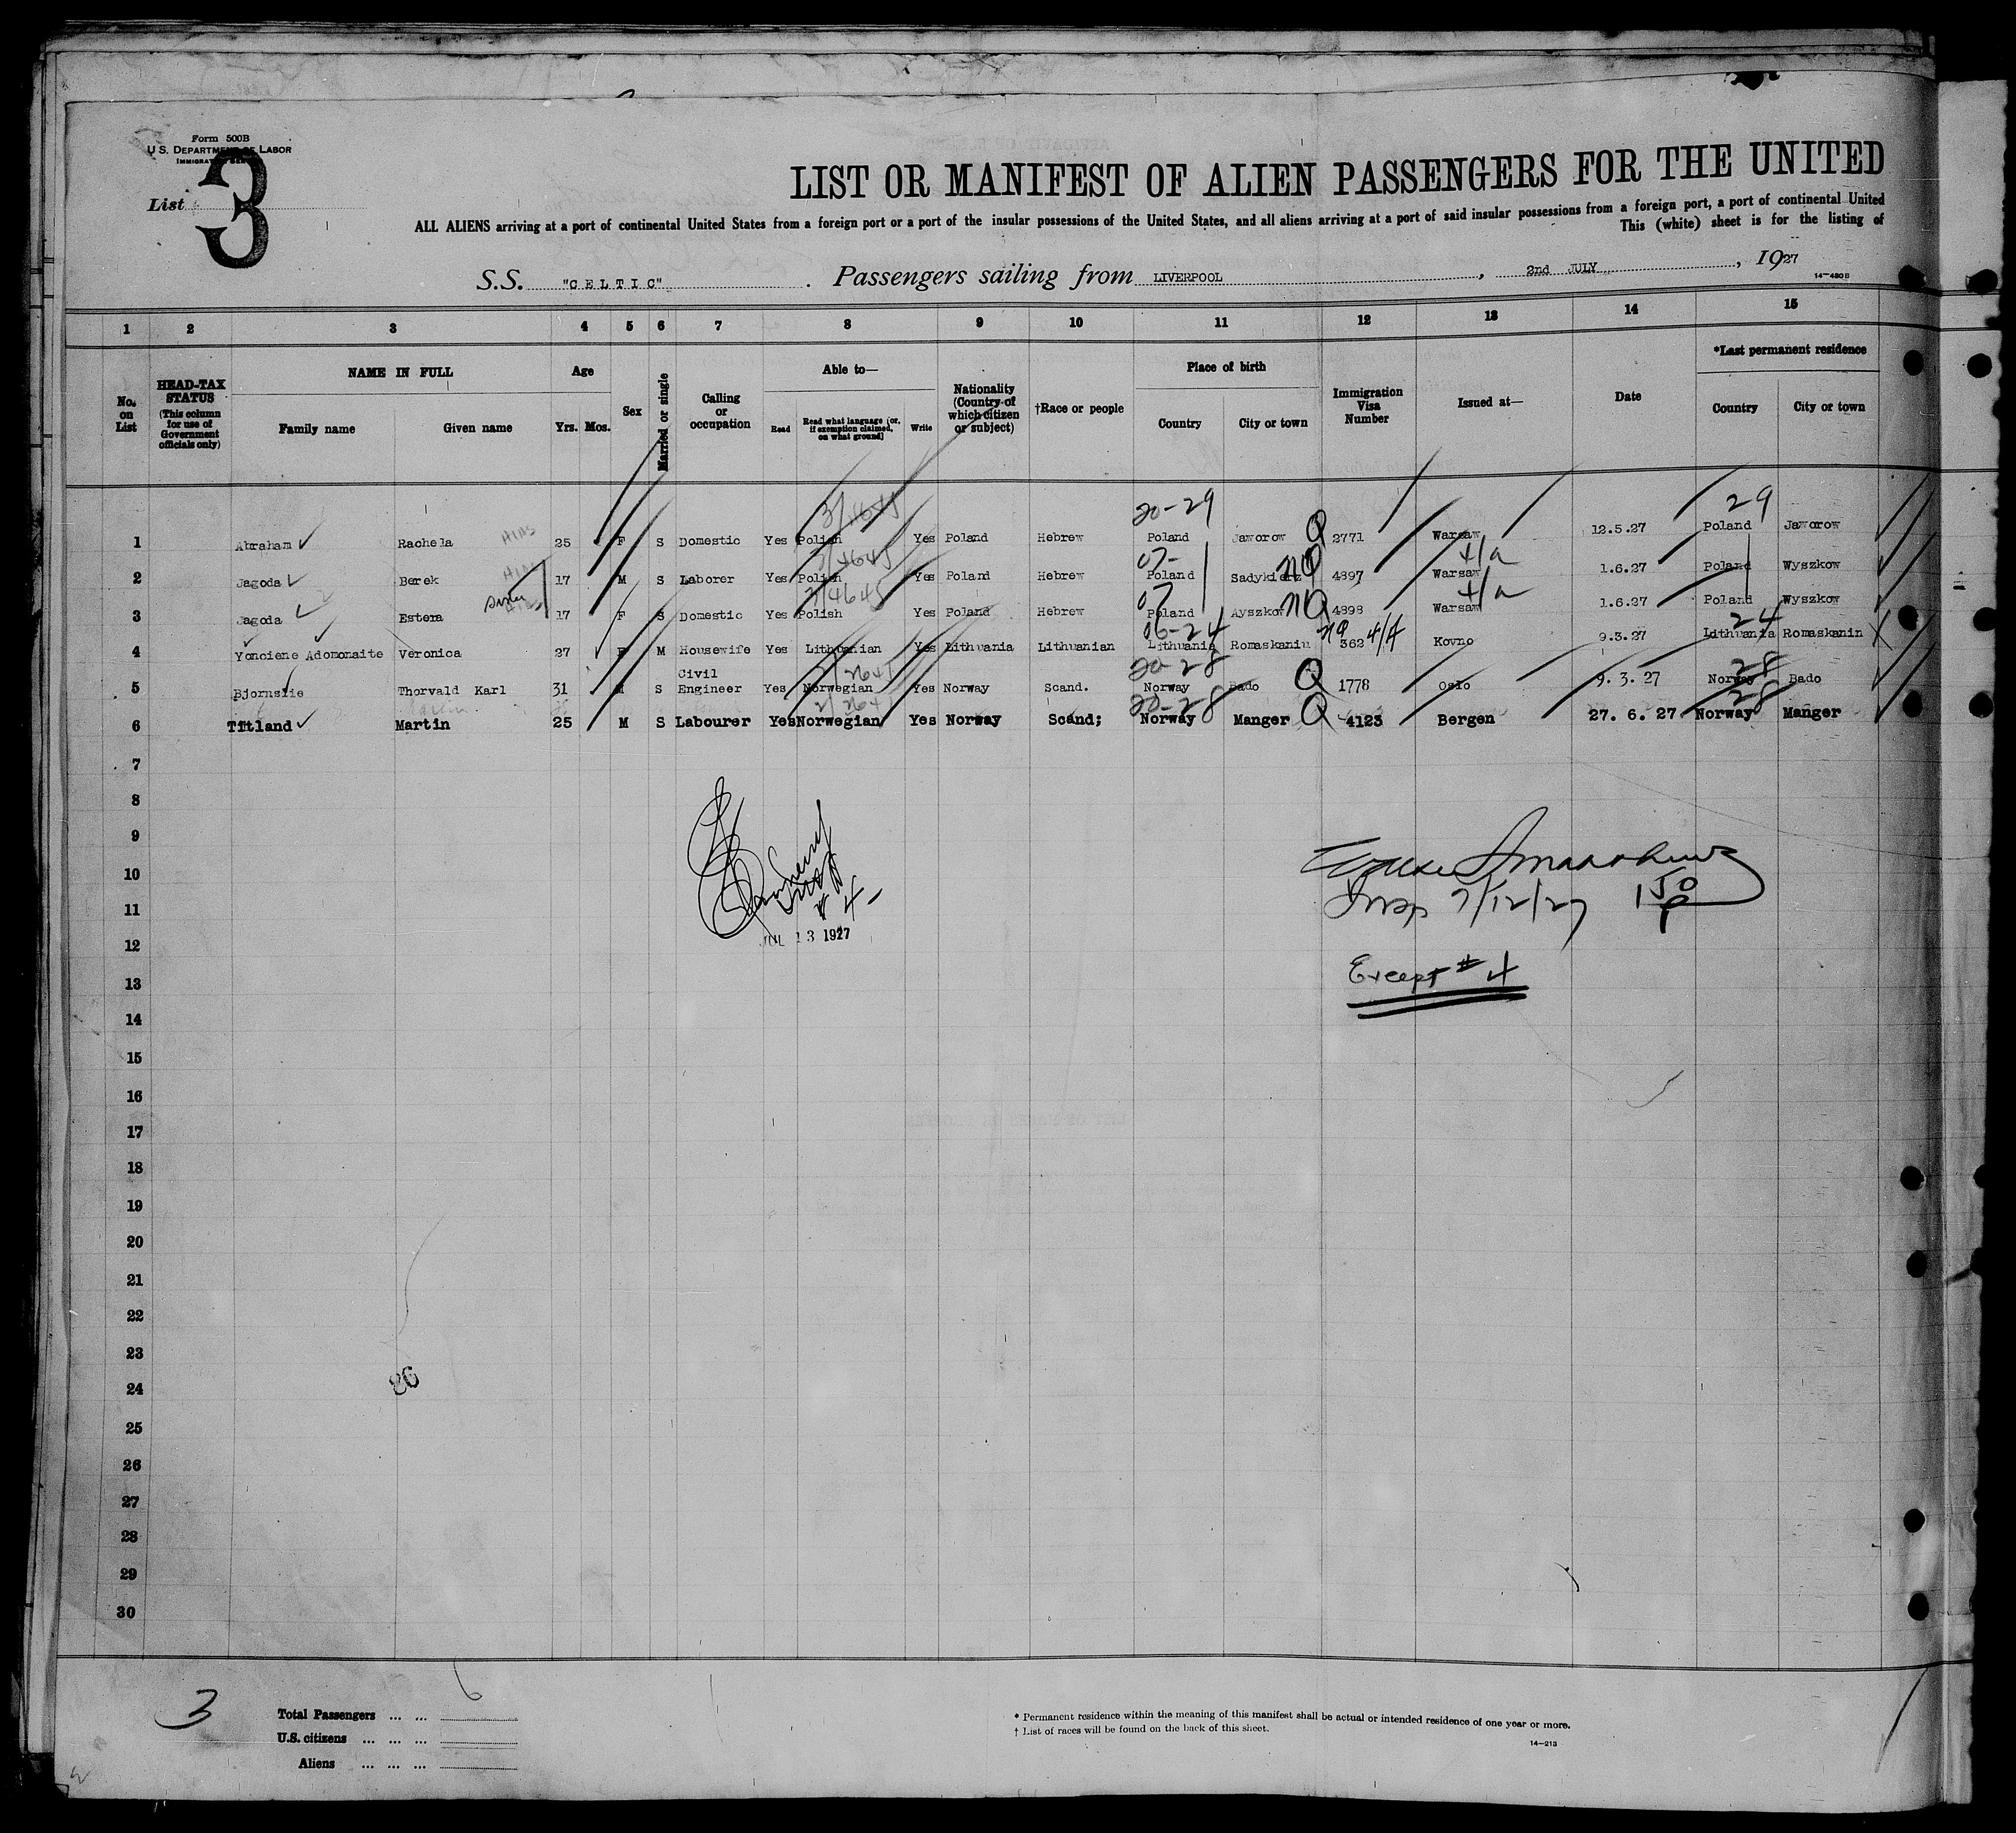 Form 500B
U.S. DEPARTMENT OF LABOR
List 3
LIST OR MANIFEST OF ALIEN PASSENGERS FOR THE UNITED
ALL ALIENS arriving at a port of continental United States from a foreign port or a port of the insular possessions of the United States, and all aliens arriving at a port of said insular possessions from a foreign port, a port of continental United
This (white) sheet is for the listing of
S.S. "CELTIC" . Passengers sailing from LIVERPOOL , 2nd JULY , 1927
14-480B
1 2 3 4 5 6 7 8 9 10 11 12 13 14 15
No. on List
HEAD-TAX STATUS (This column for use of Government officials only)
NAME IN FULL
Family name Given name
Age
Yrs. Mos.
Sex
Married or single
Calling or occupation
Able to—
Read Read what language [or, if exemption claimed, on what ground] Write
Nationality (Country of which citizen or subject)
†Race or people
Place of birth
Country City or town
Immigration Visa Number
Issued at—
Date
*Last permanent residence
Country City or town
3/4645 20-29 29
1 Abraham Rachela HIAS 25 F S Domestic Yes Polish Yes Poland Hebrew Poland Jaworow Q 2771 Warsaw 12.5.27 Poland Jaworow
3/4645 07- 4/a
2 Jagoda Berek HIAS 17 M S Laborer Yes Polish Yes Poland Hebrew Poland Sadykierz NQ 4897 Warsaw 1.6.27 Poland Wyszkow
sister 3/4645 07 4/a
3 Jagoda Estera HIAS 17 F S Domestic Yes Polish Yes Poland Hebrew Poland Ayszkow NQ 4898 Warsaw 1.6.27 Poland Wyszkow
06-24 24
4 Yonciene Adomonaite Veronica 27 F M Housewife Yes Lithuanian Yes Lithuania Lithuanian Lithuania Romaskaniu NQ 362 4/4 Kovno 9.3.27 Lithuania Romaskanin
20-28 28
5 Bjornslie Thorvald Karl 31 M S Civil Engineer Yes Norwegian Yes Norway Scand. Norway Bado Q 1778 Oslo 9.3.27 Norway Bado
20-28 28
6 Titland Martin 25 M S Labourer Yes Norwegian Yes Norway Scand; Norway Manger Q 4123 Bergen 27.6.27 Norway Manger
7
8
9
10
11
12
13
14
15
16
17
18
19
20
21
22
23
24
25
26
27
28
29
30
# 4
JUL 13 1927
Insp 7/12/27 150
Except # 4
86
3
6
Total Passengers ... ...
U.S. citizens ... ... ...
Aliens ... ... ...
* Permanent residence within the meaning of this manifest shall be actual or intended residence of one year or more.
† List of races will be found on the back of this sheet.
14-213